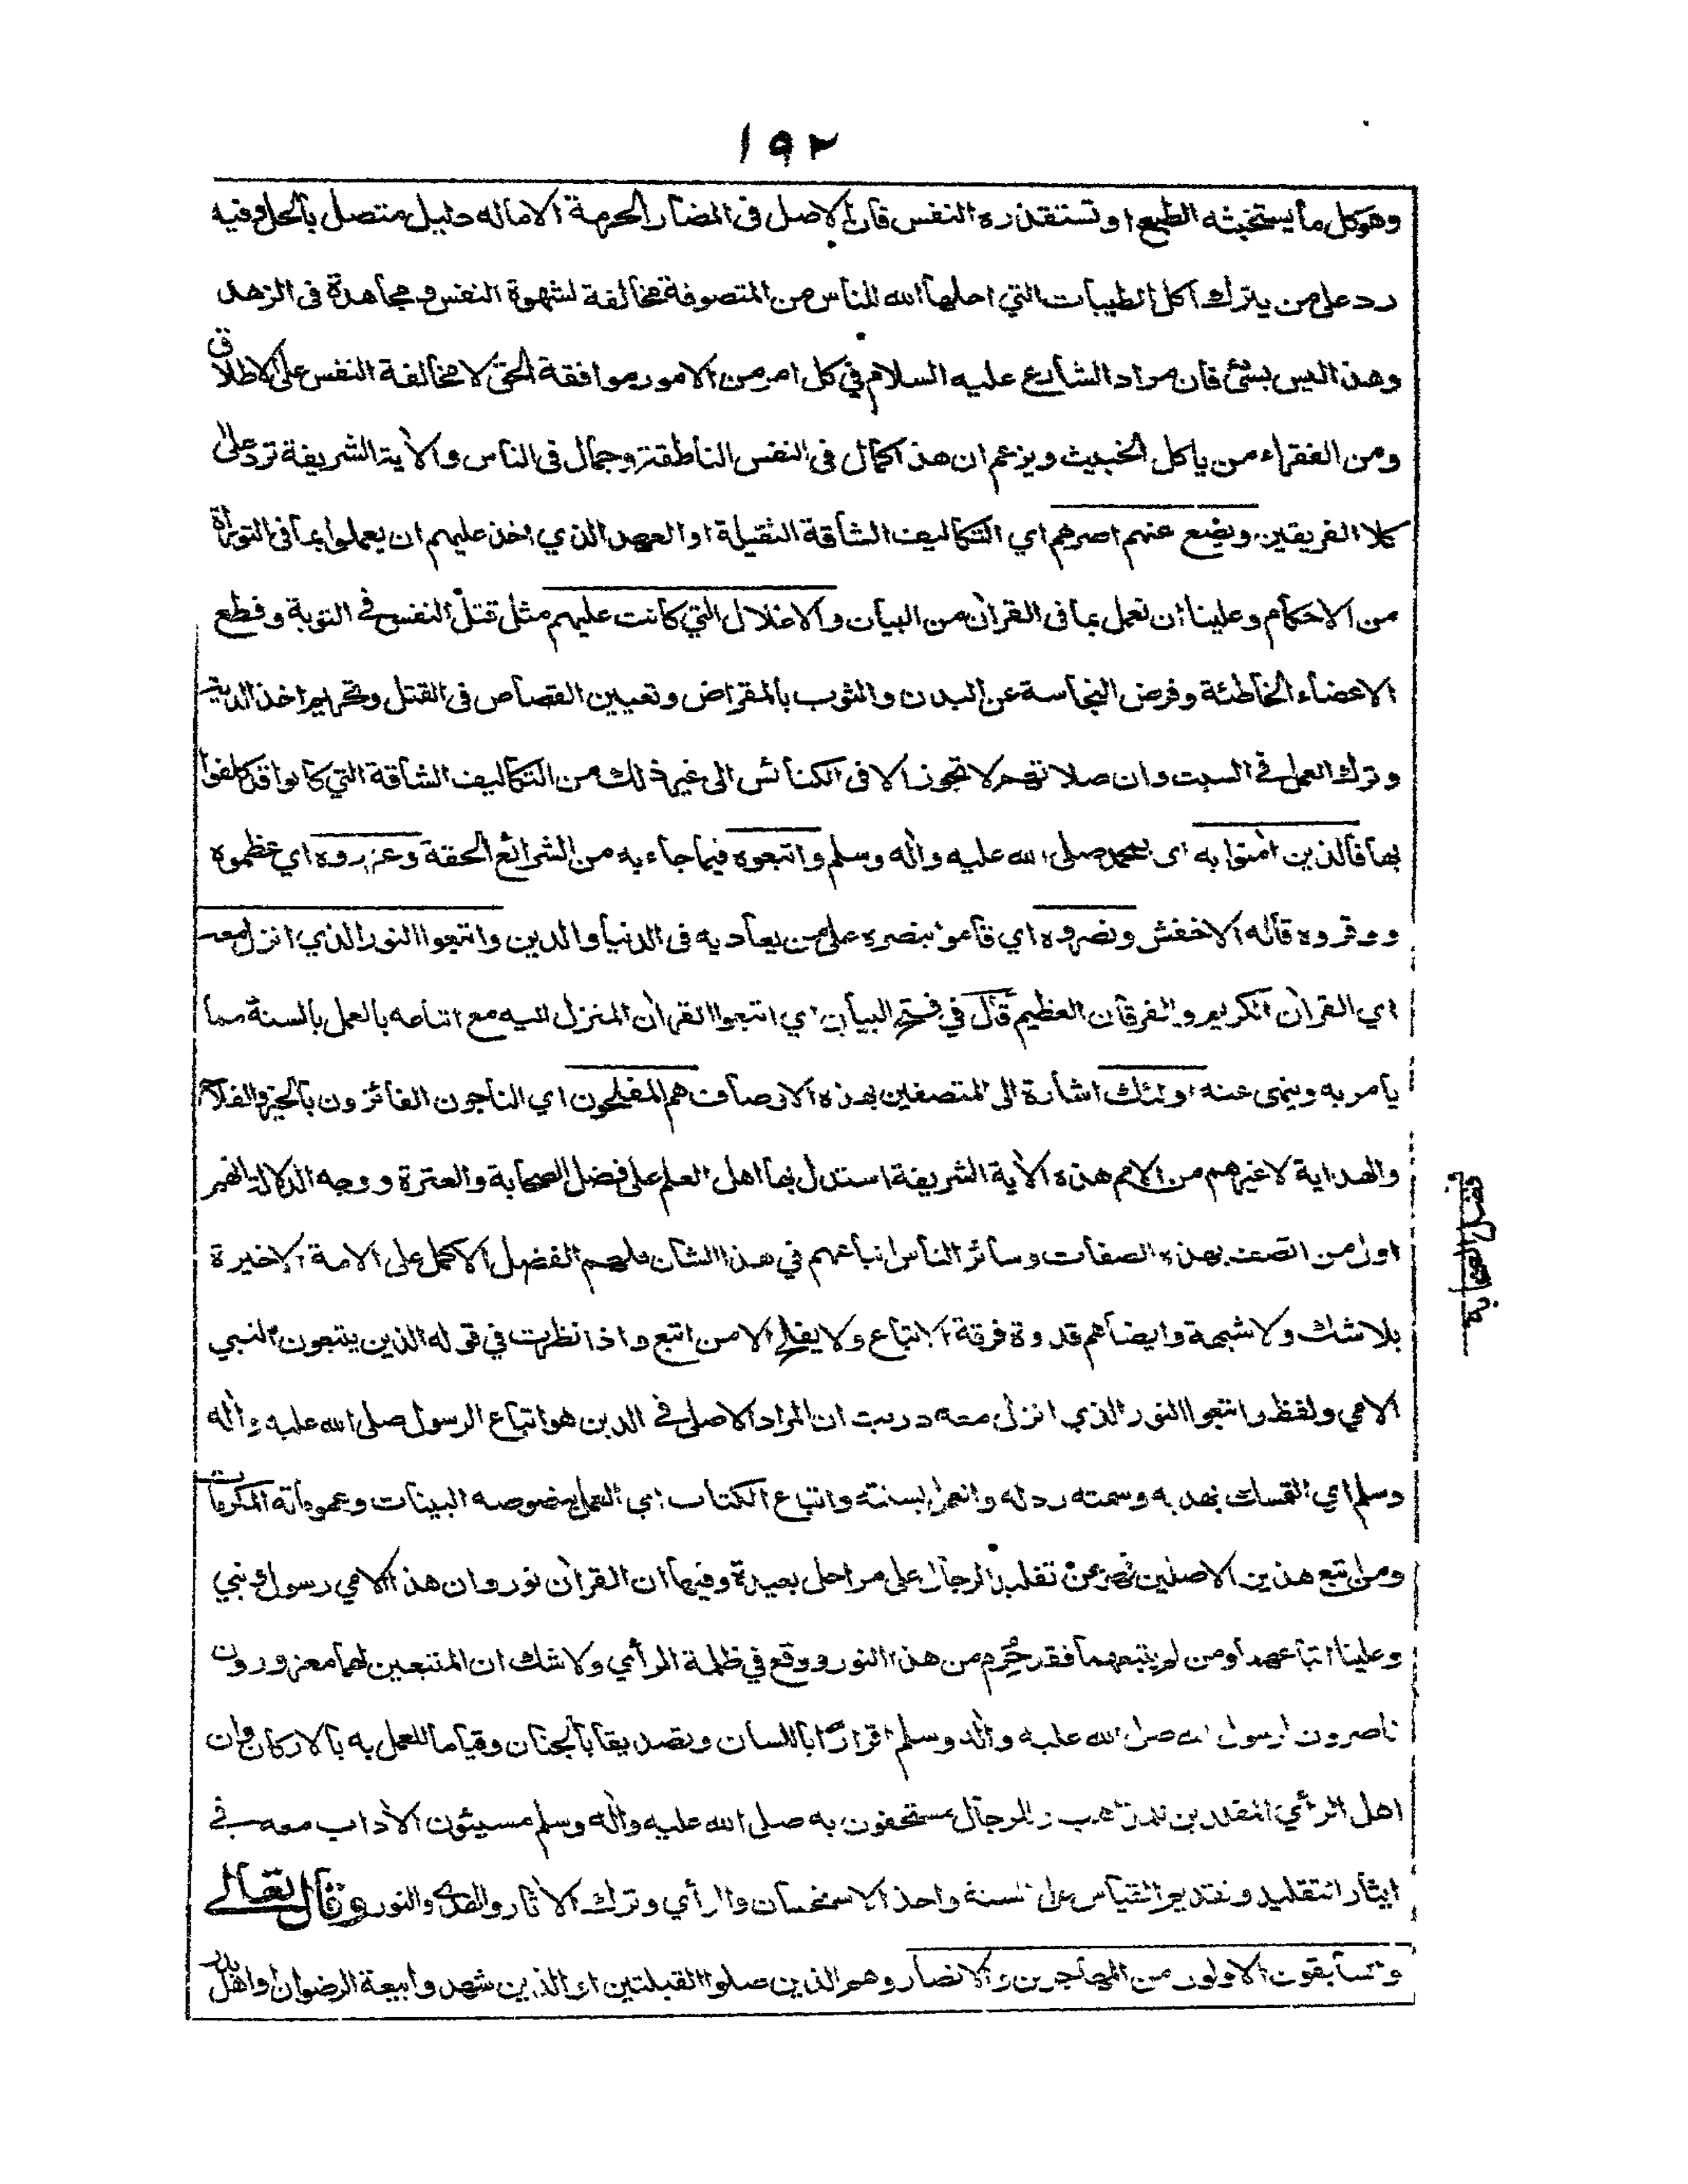 ١٩٢
وهو كل ما يستخبثه الطبع او تستقذره النفس فان الاصل فى المضار الحرمة الا ماله دليل متصل بالحل وفيه
رد على من يترك اكل الطيبات التي احلها الله للناس من المتصوفة مخالفة لشهوة النفس و مجاهدة فى الزهد
وهذا ليس بشئ فان مراد الشارع عليه السلام في كل امر من الامور موافقة الحق لا مخالفة النفس على الاطلاق
ومن الفقراء من ياكل الخبيث ويزعم ان هذا كمال فى النفس الناطقة وجمال فى الناس والأية الشريفة ترد على
كلا الفريقين ويضع عنهم اصرهم اي التكاليف الشاقة الثقيلة او العهد الذي اخذ عليهم ان يعملوا بما فى التوراة
من الاحكام وعلينا ان نعمل بما فى القرأن من البيان والاغلال التي كانت عليهم مثل قتل النفس في التوبة وقطع
الاعضاء الخاطئة وقرض النجاسة عن البدن والثوب بالمقراض وتعيين القصاص فى القتل وتحريم اخذ الدية
وترك العمل في السبت وان صلاتهم لا تجوز الا فى الكنائس الى غير ذلك من التكاليف الشاقة التي كانوا قد كلفوا
بها فالذين أمنوا به اى بمحمد صلى الله عليه وأله وسلم واتبعوه فيما جاء به من الشرائع الحقة وعزروه اي عظموه
ووقروه قاله الاخفش ونصروه اي قاموا بنصره على من يعاديه فى الدنيا والدين واتبعوا النور الذي انزل معه
اي القرأن الكريم والفرقان العظيم قال في فتح البيان اي اتبعوا القرأن المنزل اليه مع اتباعه بالعمل بالسنة مما
يامر به وينهى عنه اولئك اشارة الى المتصفين بهذه الاوصاف هم المفلحون اي الناجون الفائزون بالخير والفلاح
والهداية لا غيرهم من الامم هذه الأية الشريفة استدل بها اهل العلم على فضل الصحابة والعترة ووجه الدلالة انهم
اول من اتصف بهذه الصفات وسائر الناس اتباعهم في هذا الشان فلهم الفضل الاكمل على الامة الاخيرة
بلا شك ولا شبهة وايضا هم قدوة فرقة الاتباع ولا يفلح الا من اتبع واذا نظرت في قوله الذين يتبعون النبي
الامي ولفظ واتبعوا النور الذي انزل معه دريت ان المراد الاصلى في الدين هو اتباع الرسول صلى الله عليه وأله
وسلم اي التمسك بهديه وسمته ودله والعمل بسنته واتباع الكتاب اي العمل بنصوصه البينات وعموماته المكرمات
ومن يتبع هذين الاصلين فهو عن تقليد الرجال على مراحل بعيدة وفيها ان القرأن نور وان هذا الامي رسول ونبي
وعلينا اتباعهما ومن لم يتبعهما فقد حُرِم من هذا النور ووقع في ظلمة الرأي ولا شك ان المتبعين لهما معزورون
ناصرون لرسول الله صلى الله عليه وأله وسلم اقرارًا باللسان وتصديقا بالجنان وقياما للعمل به بالاركان وان
اهل الرأي المقلدين لمذاهب الرجال مستخفون به صلى الله عليه وأله وسلم مسيئون الأداب معه في
ايثار التقليد وتقديم القياس على السنة واخذ الاستحسان والرأي وترك الأثار والهدى والنور وقال تعالى
والسابقون الاولون من المهاجرين والانصار وهم الذين صلوا القبلتين او الذين شهدوا بيعة الرضوان او اهل بدر